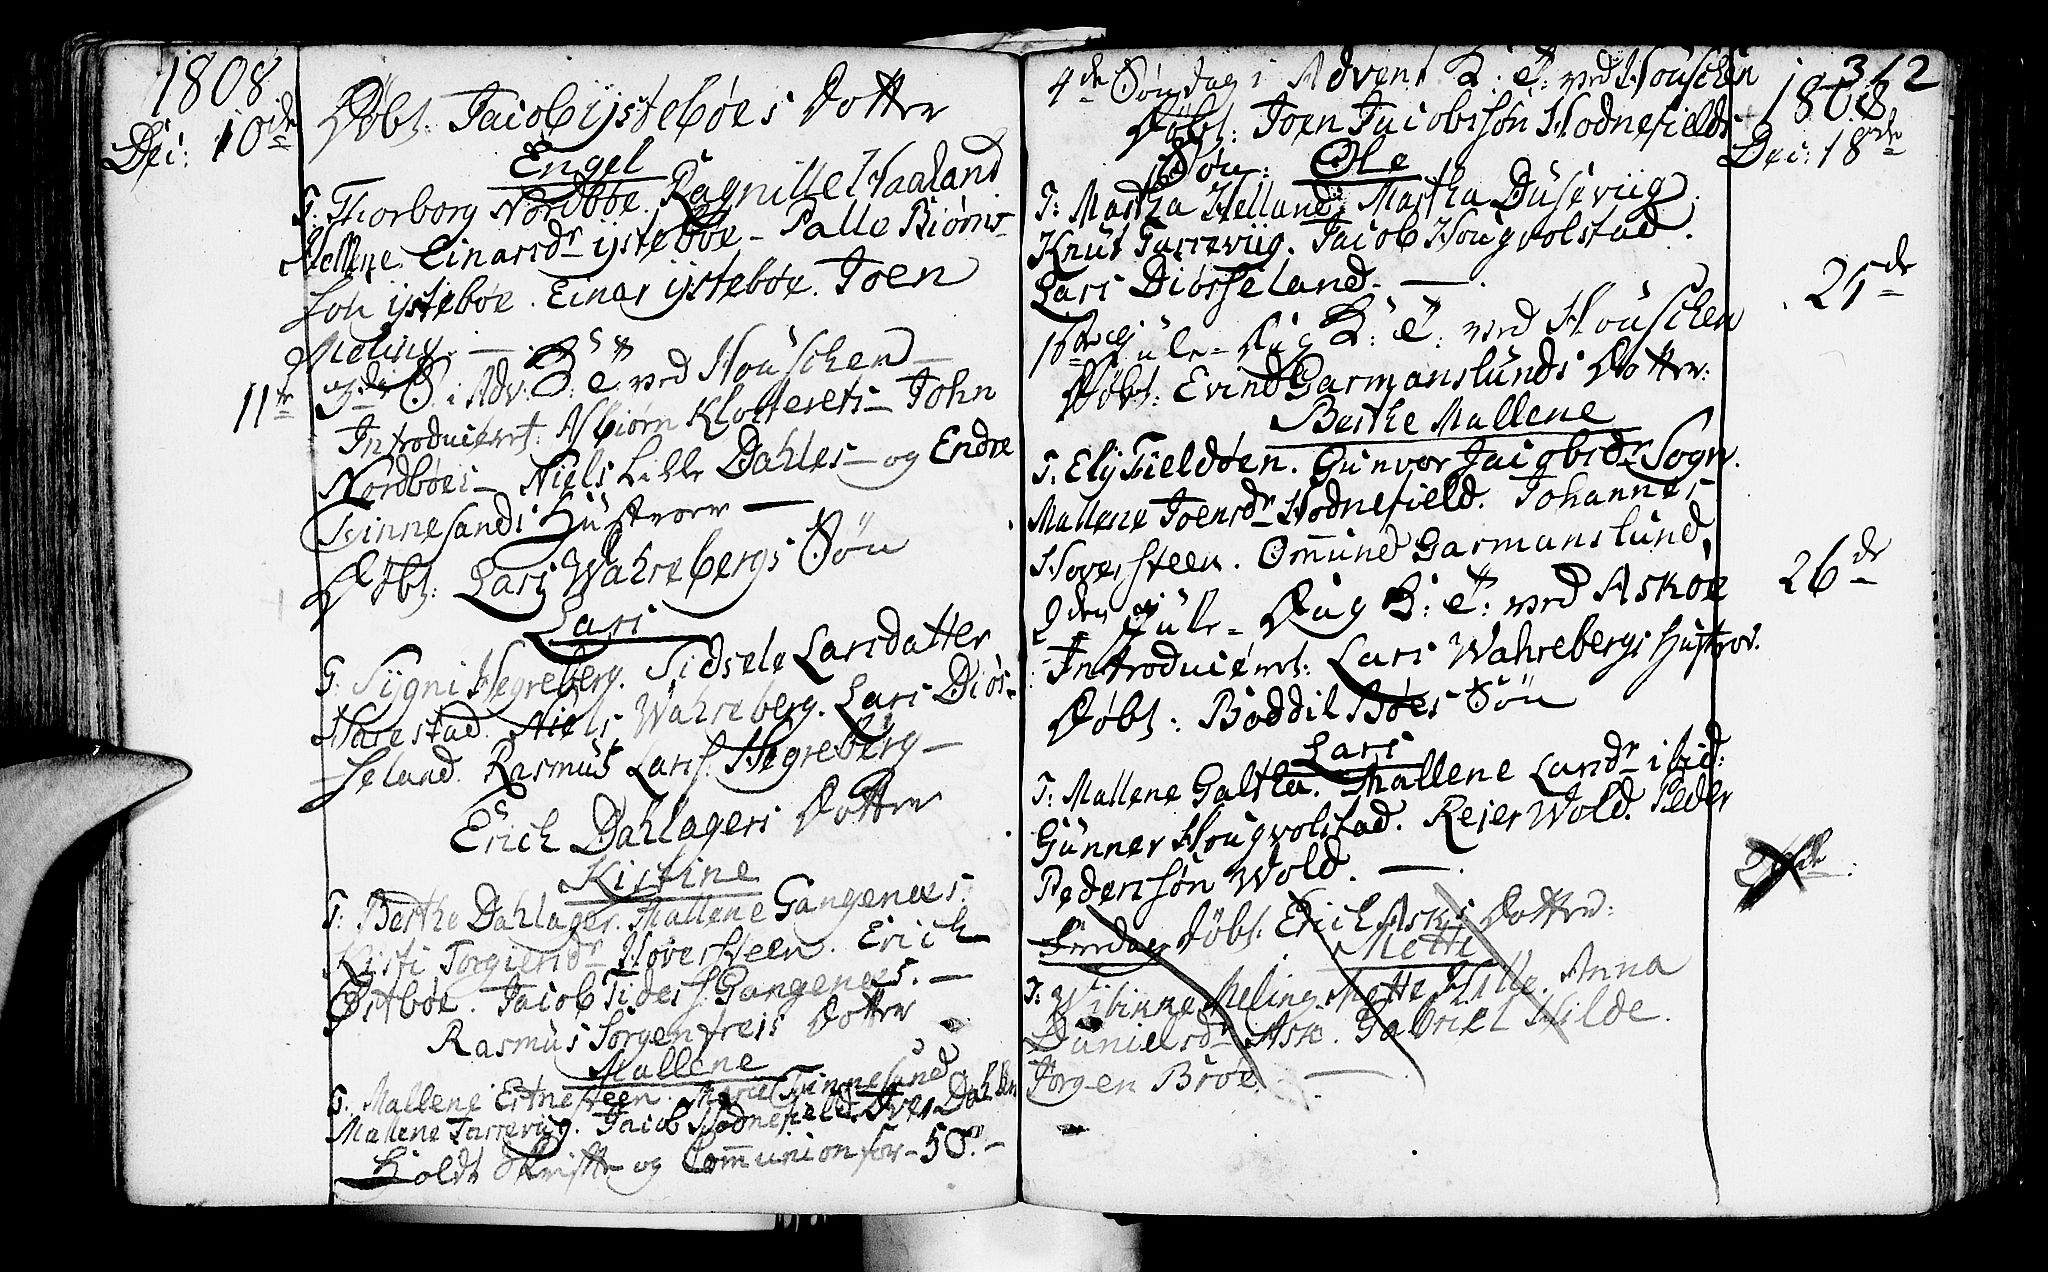 1808
Dec: 10de
Døbt: Jacob ÿstebøes Dotter
Engel
T: Thorborg Nordbøe. Ragnille Haaland
Hellene Einarsdr ÿstebøe - Palle Biørns-
søn ÿstebøe. Einer ÿstebøe. Joen
Meling. —
11te
3die S. i Adv. B: et T: ved Houschen
Introduceret: Asbiørn Klosterets - John
Nordbøes - Niels Lille Dahles - og Endre
Svinnesands Hustroer —
Døbt: Lars Wahrebergs Søn
Lars
T: Sÿgni Hegreberg. Sidsele Larsdatter
Harestad. Niels Wahreberg. Lars Diøs-
seland. Rasmus Lars: Hegreberg —
Erich Dahlagers Dotter
Kistine
T: Berthe Dahlager. Mallene Gangenæs.
Kisti Torgiersdr Hoversteen. Erich
Østbøe. Jacob Tiders: Gangenæs. —
Rasmus Sorgenfreis Dotter
Mallene
T. Mallene Ertnesteen. Marie Svinnesund
Mallene Tarreviig. Jacob Hodnefield. Iver Dahlen
Holdt Skrifte og Communion for - 50. -
312
4de Søndag i Advent B: et T: ved Houschen
1808
Dec: 18de
Døbt: Joen Jacobssøn Hodnefields
Søn: Ole
T: Martha Helland. Martha Duseviig.
Knut Tarreviig. Jacob Hougvolstad.
Lars Diørseland. —
25de
1ste Jule-Dag B: et T: ved Houschen
Døbt: Evind Garmanslunds Dotter:
Berthe Mallene
T. Elj Fieldøen. Gunvor Jacobsdr Sogn.
Mallene Joensdr Hodnefield. Johannes
Hoversteen. Ommund Garmanslund,
26de
2den Jule-Dag B: et T: ved Askoe
Introducéret: Lars Wahrebergs Hustroe.
Døbt: Boddil Bøes Søn
Lars
T: Mallene Galtha. Mallene Larsdr ibid:
Gunner Hougvolstad. Reier Wold. Peder
Pederssøn Wold. —
Fredag Døbt. Erich Asks Dotter:
Mette
T: Wibinne Meling. Mette Hille. Anna
Danielsdr Ask. Gabriel Hilde.
Jørgen Broe. —